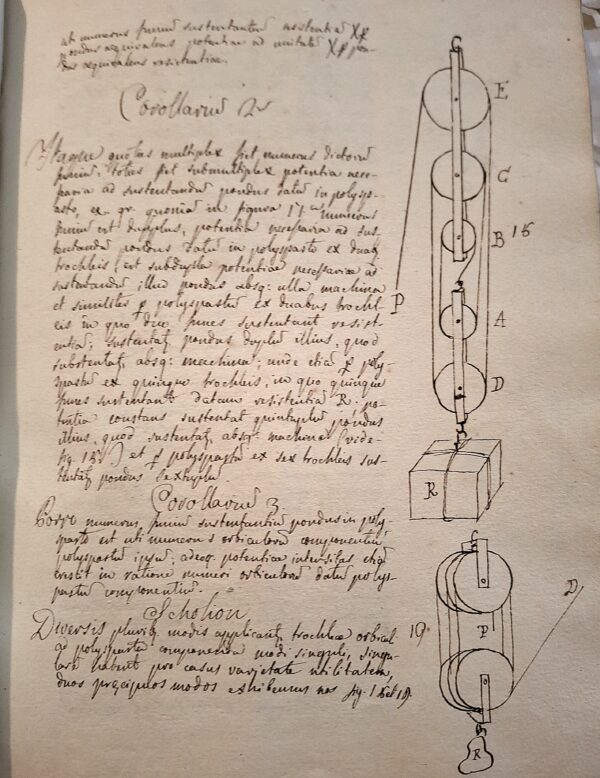 ut numerus funiū sustentantiū resistentiā
pondus aequivalens potentiae ad unitatē
dus aequivalens resistentiae.
Corollariū 2
Itaque quotus multiplex fit numerus dictorū
funiū, totus fit submultiplex potentia neces-
saria ad sustentandū pondus datū in polysp-
asto, ex. gr. quoniā in figura 17 numerus
funiū est duplus, potentia necessaria ad sus-
tentandū pondus datū in polyspasto ex duab
trochleis, est subdupla potentiae necessariae ad
sustentandū illud pondus absq: ulla machina
et similiter polyspastū ex duabus trochl-
eis in quo duo funes sustentant resist-
entiā; sustentat pondus duplū illius, quod
substentat, absq: machina; unde etiā poly-
spastū ex quinque trochleis, in quo quinque
funes sustentant datam resistentiā R. po-
tentia constans sustentat quintuplū pondus
illius, quod sustentat absq: machina (vide
fig. 18) et polyspastū ex sex trochleis sus-
tentat pondus sextuplū.
Corollariū 3
Porro numerus funiū sustentantiū pondus in poly-
spasto est uti numerus orbiculorū componentiū
polyspastū ipsū; adeoq. potentiae intensitas etiā
crescit in ratione numeri orbiculorū datū polys-
pastū componentiū.
Scholion
Diversis modis applicant trochleae orbicul
ad polyspasta componenda modi singuli, singu-
lare habent pro casus varietate utilitatem,
duos praecipuos modos exhibemus nos fig. 18 et 19.
E
C
B 18
P
A
D
R
19.
P
D
R